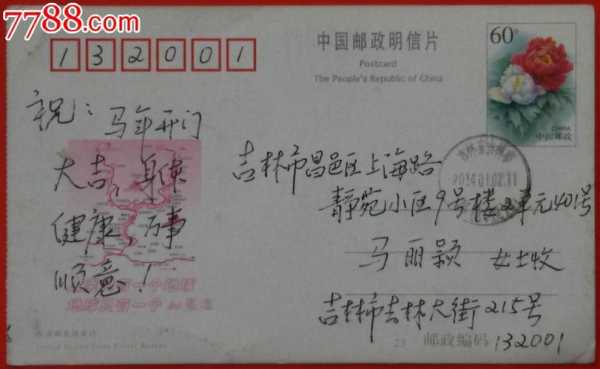 7788.com
132001
中国邮政明信片
Postcard
The People's Republic of China
60分
CHINA
中国邮政
祝：马年开门
大吉，身体
健康，万事
顺意！
吉林市昌邑区上海路
静苑小区9号楼2单元401号
马丽颖 女士收
吉林市吉林大街215号
邮政编码 132001